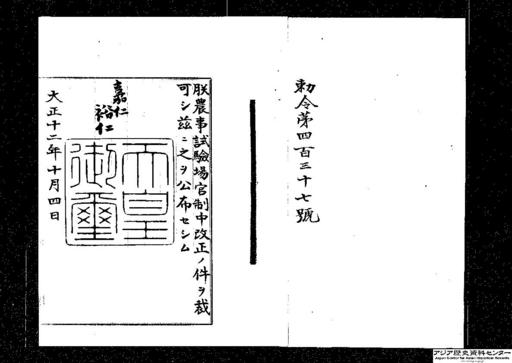 勅令第四百三十七號
朕農事試驗場官制中改正ノ件ヲ裁
可シ玆ニ之ヲ公布セシム
嘉仁
裕仁
天皇
御璽
大正十二年十月四日
アジア歴史資料センター
Japan Center for Asian Historical Records